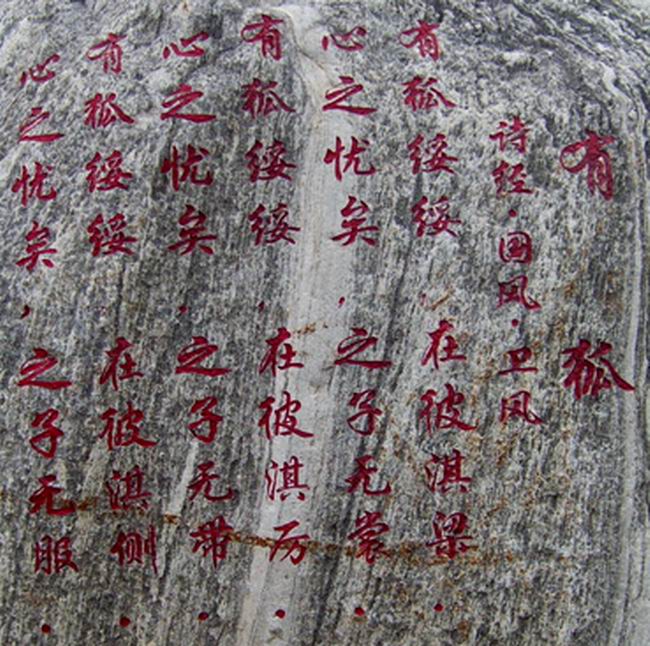 有狐
诗经·国风·卫风
有狐绥绥，在彼淇梁。
心之忧矣，之子无裳。
有狐绥绥，在彼淇厉。
心之忧矣，之子无带。
有狐绥绥，在彼淇侧。
心之忧矣，之子无服。